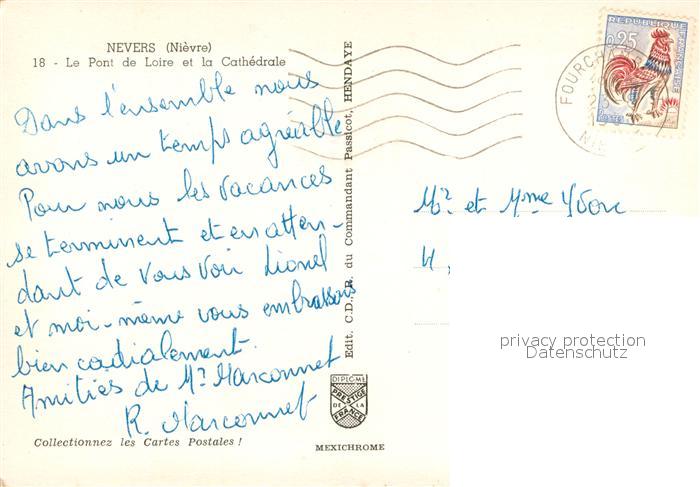 NEVERS (Nièvre)
18 - Le Pont de Loire et la Cathédrale
Dans l'ensemble nous
avons un temps agréable
Pour nous les vacances
se terminent et en atten-
dant de vous voir Lionel
et moi-même vous embrassons
bien cordialement.
Amitiés de Mr Marconnet
R. Marconnet
Collectionnez les Cartes Postales !
Edit. C.D., R. du Commandant Passicot, HENDAYE
DIPLOME
PRESTIGE
DE LA
FRANCE
MEXICHROME
REPUBLIQUE FRANÇAISE
0,25
POSTES
FOURCH
NIE
Mr et Mme Yvon
privacy protection
Datenschutz